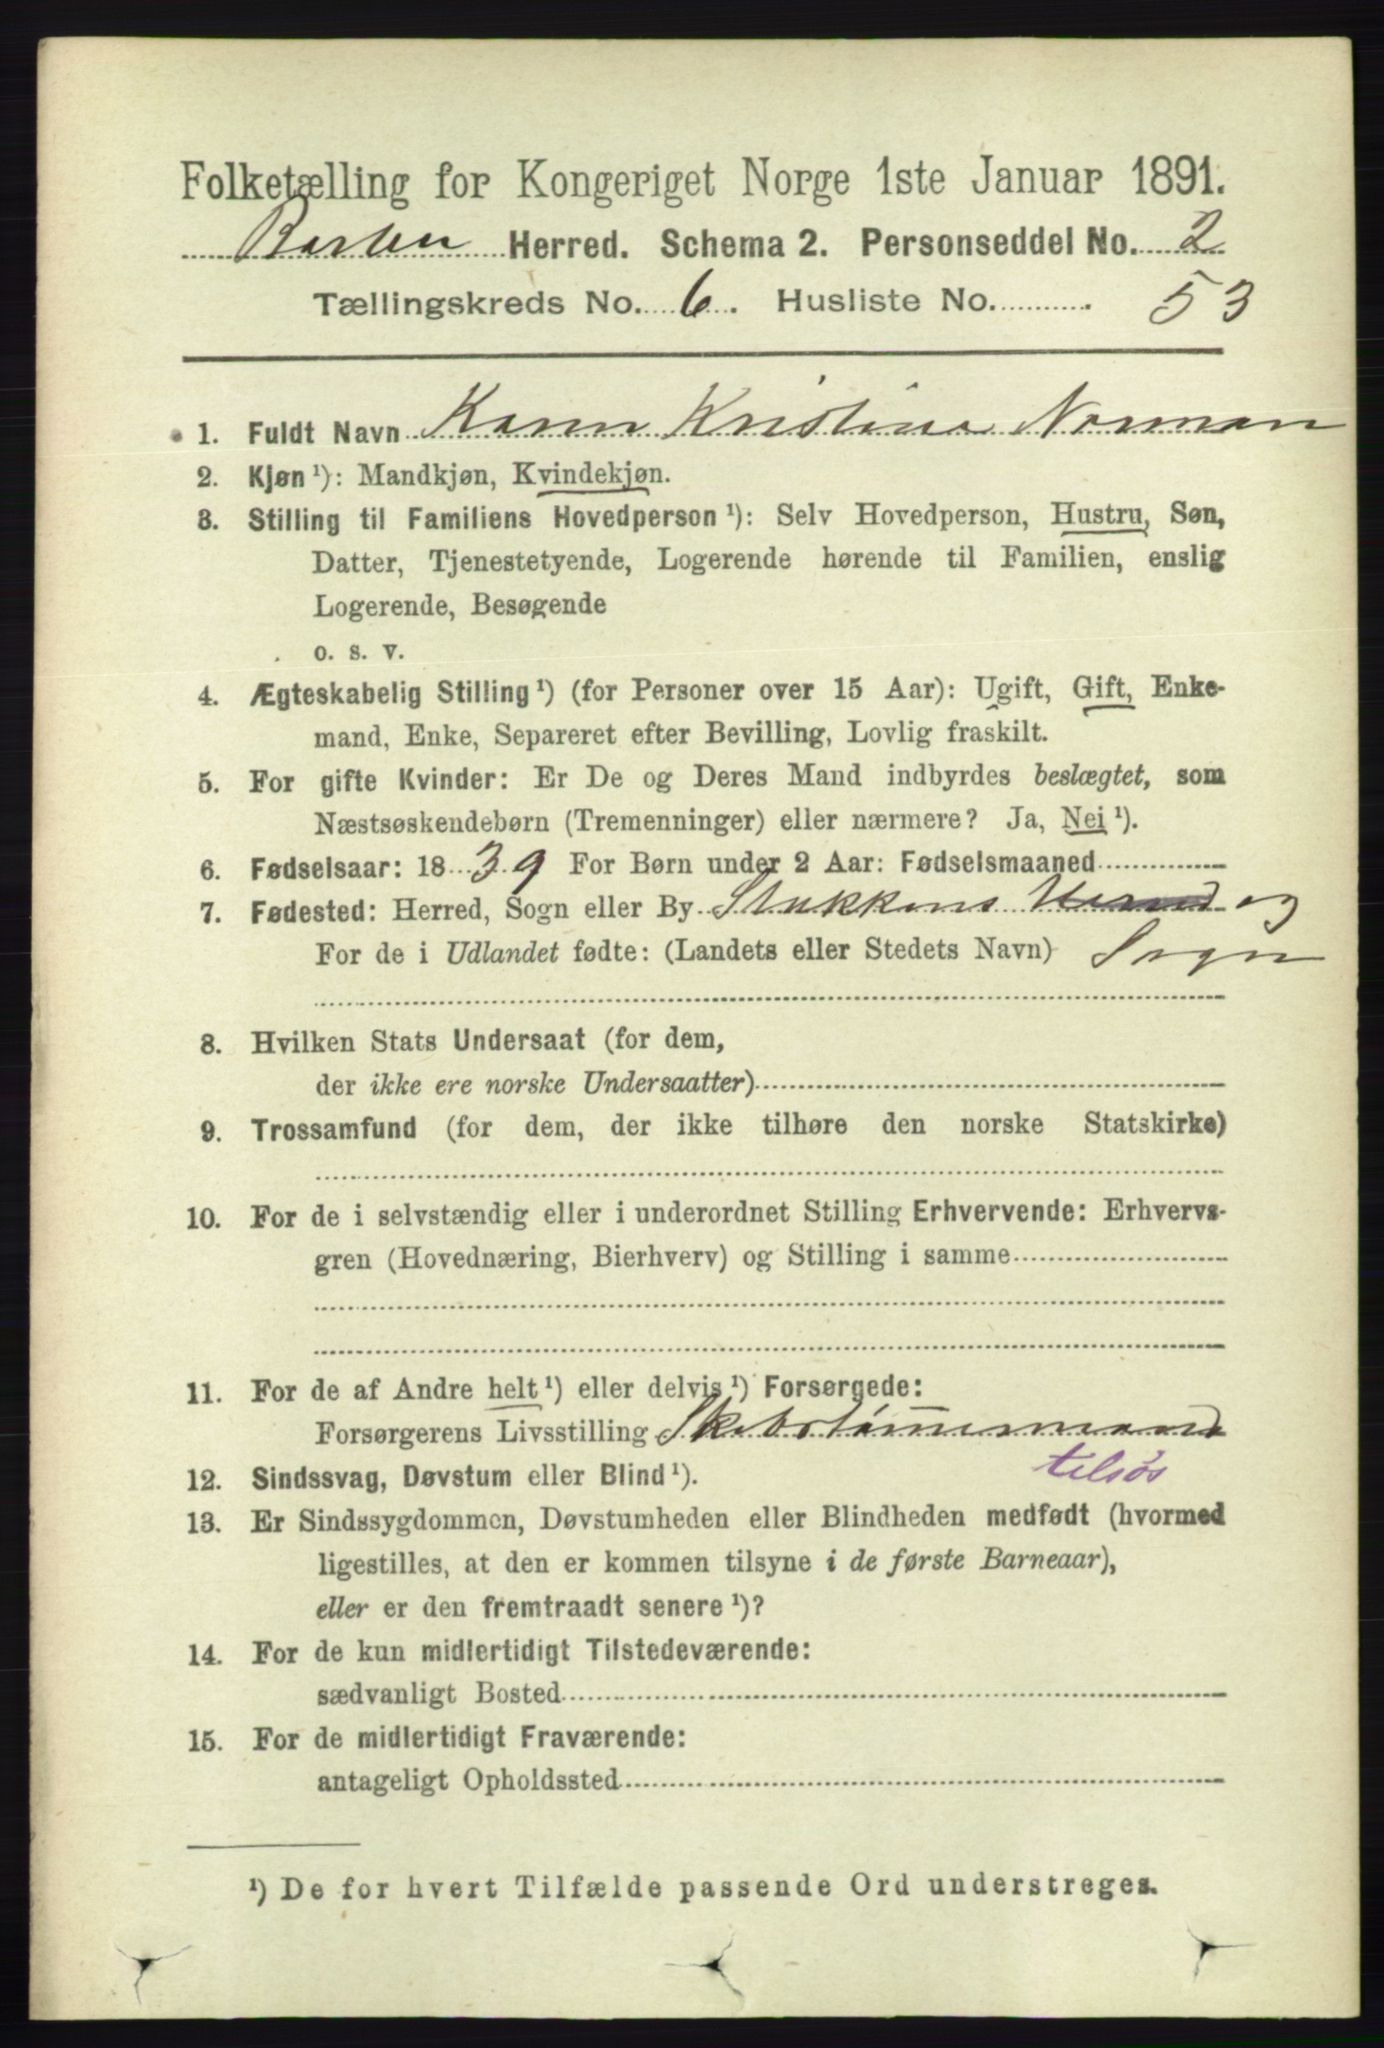 Folketælling for Kongeriget Norge 1ste Januar 1891.
Barbu Herred. Schema 2. Personseddel No. 2
Tællingskreds No. 6. Husliste No. 53
1. Fuldt Navn Karen Kristine Norman
2. Kjøn¹): Mandkjøn, Kvindekjøn.
3. Stilling til Familiens Hovedperson¹): Selv Hovedperson, Hustru, Søn,
Datter, Tjenestetyende, Logerende hørende til Familien, enslig
Logerende, Besøgende
o. s. v.
4. Ægteskabelig Stilling¹) (for Personer over 15 Aar): Ugift, Gift, Enke-
mand, Enke, Separeret efter Bevilling, Lovlig fraskilt.
5. For gifte Kvinder: Er De og Deres Mand indbyrdes beslægtet, som
Næstsøskendebørn (Tremenninger) eller nærmere? Ja, Nei¹).
6. Fødselsaar: 1839 For Børn under 2 Aar: Fødselsmaaned
7. Fødested: Herred, Sogn eller By Stokkens Herred og
For de i Udlandet fødte: (Landets eller Stedets Navn) Sogn
8. Hvilken Stats Undersaat (for dem,
der ikke ere norske Undersaatter)
9. Trossamfund (for dem, der ikke tilhøre den norske Statskirke)
10. For de i selvstændig eller i underordnet Stilling Erhvervende: Erhvervs-
gren (Hovednæring, Bierhverv) og Stilling i samme
11. For de af Andre helt¹) eller delvis¹) Forsørgede:
Forsørgerens Livsstilling Skibstømmermand
tilsøs
12. Sindssvag, Døvstum eller Blind¹).
13. Er Sindssygdommen, Døvstumheden eller Blindheden medfødt (hvormed
ligestilles, at den er kommen tilsyne i de første Barneaar),
eller er den fremtraadt senere¹)?
14. For de kun midlertidigt Tilstedeværende:
sædvanligt Bosted
15. For de midlertidigt Fraværende:
antageligt Opholdssted
¹) De for hvert Tilfælde passende Ord understreges.